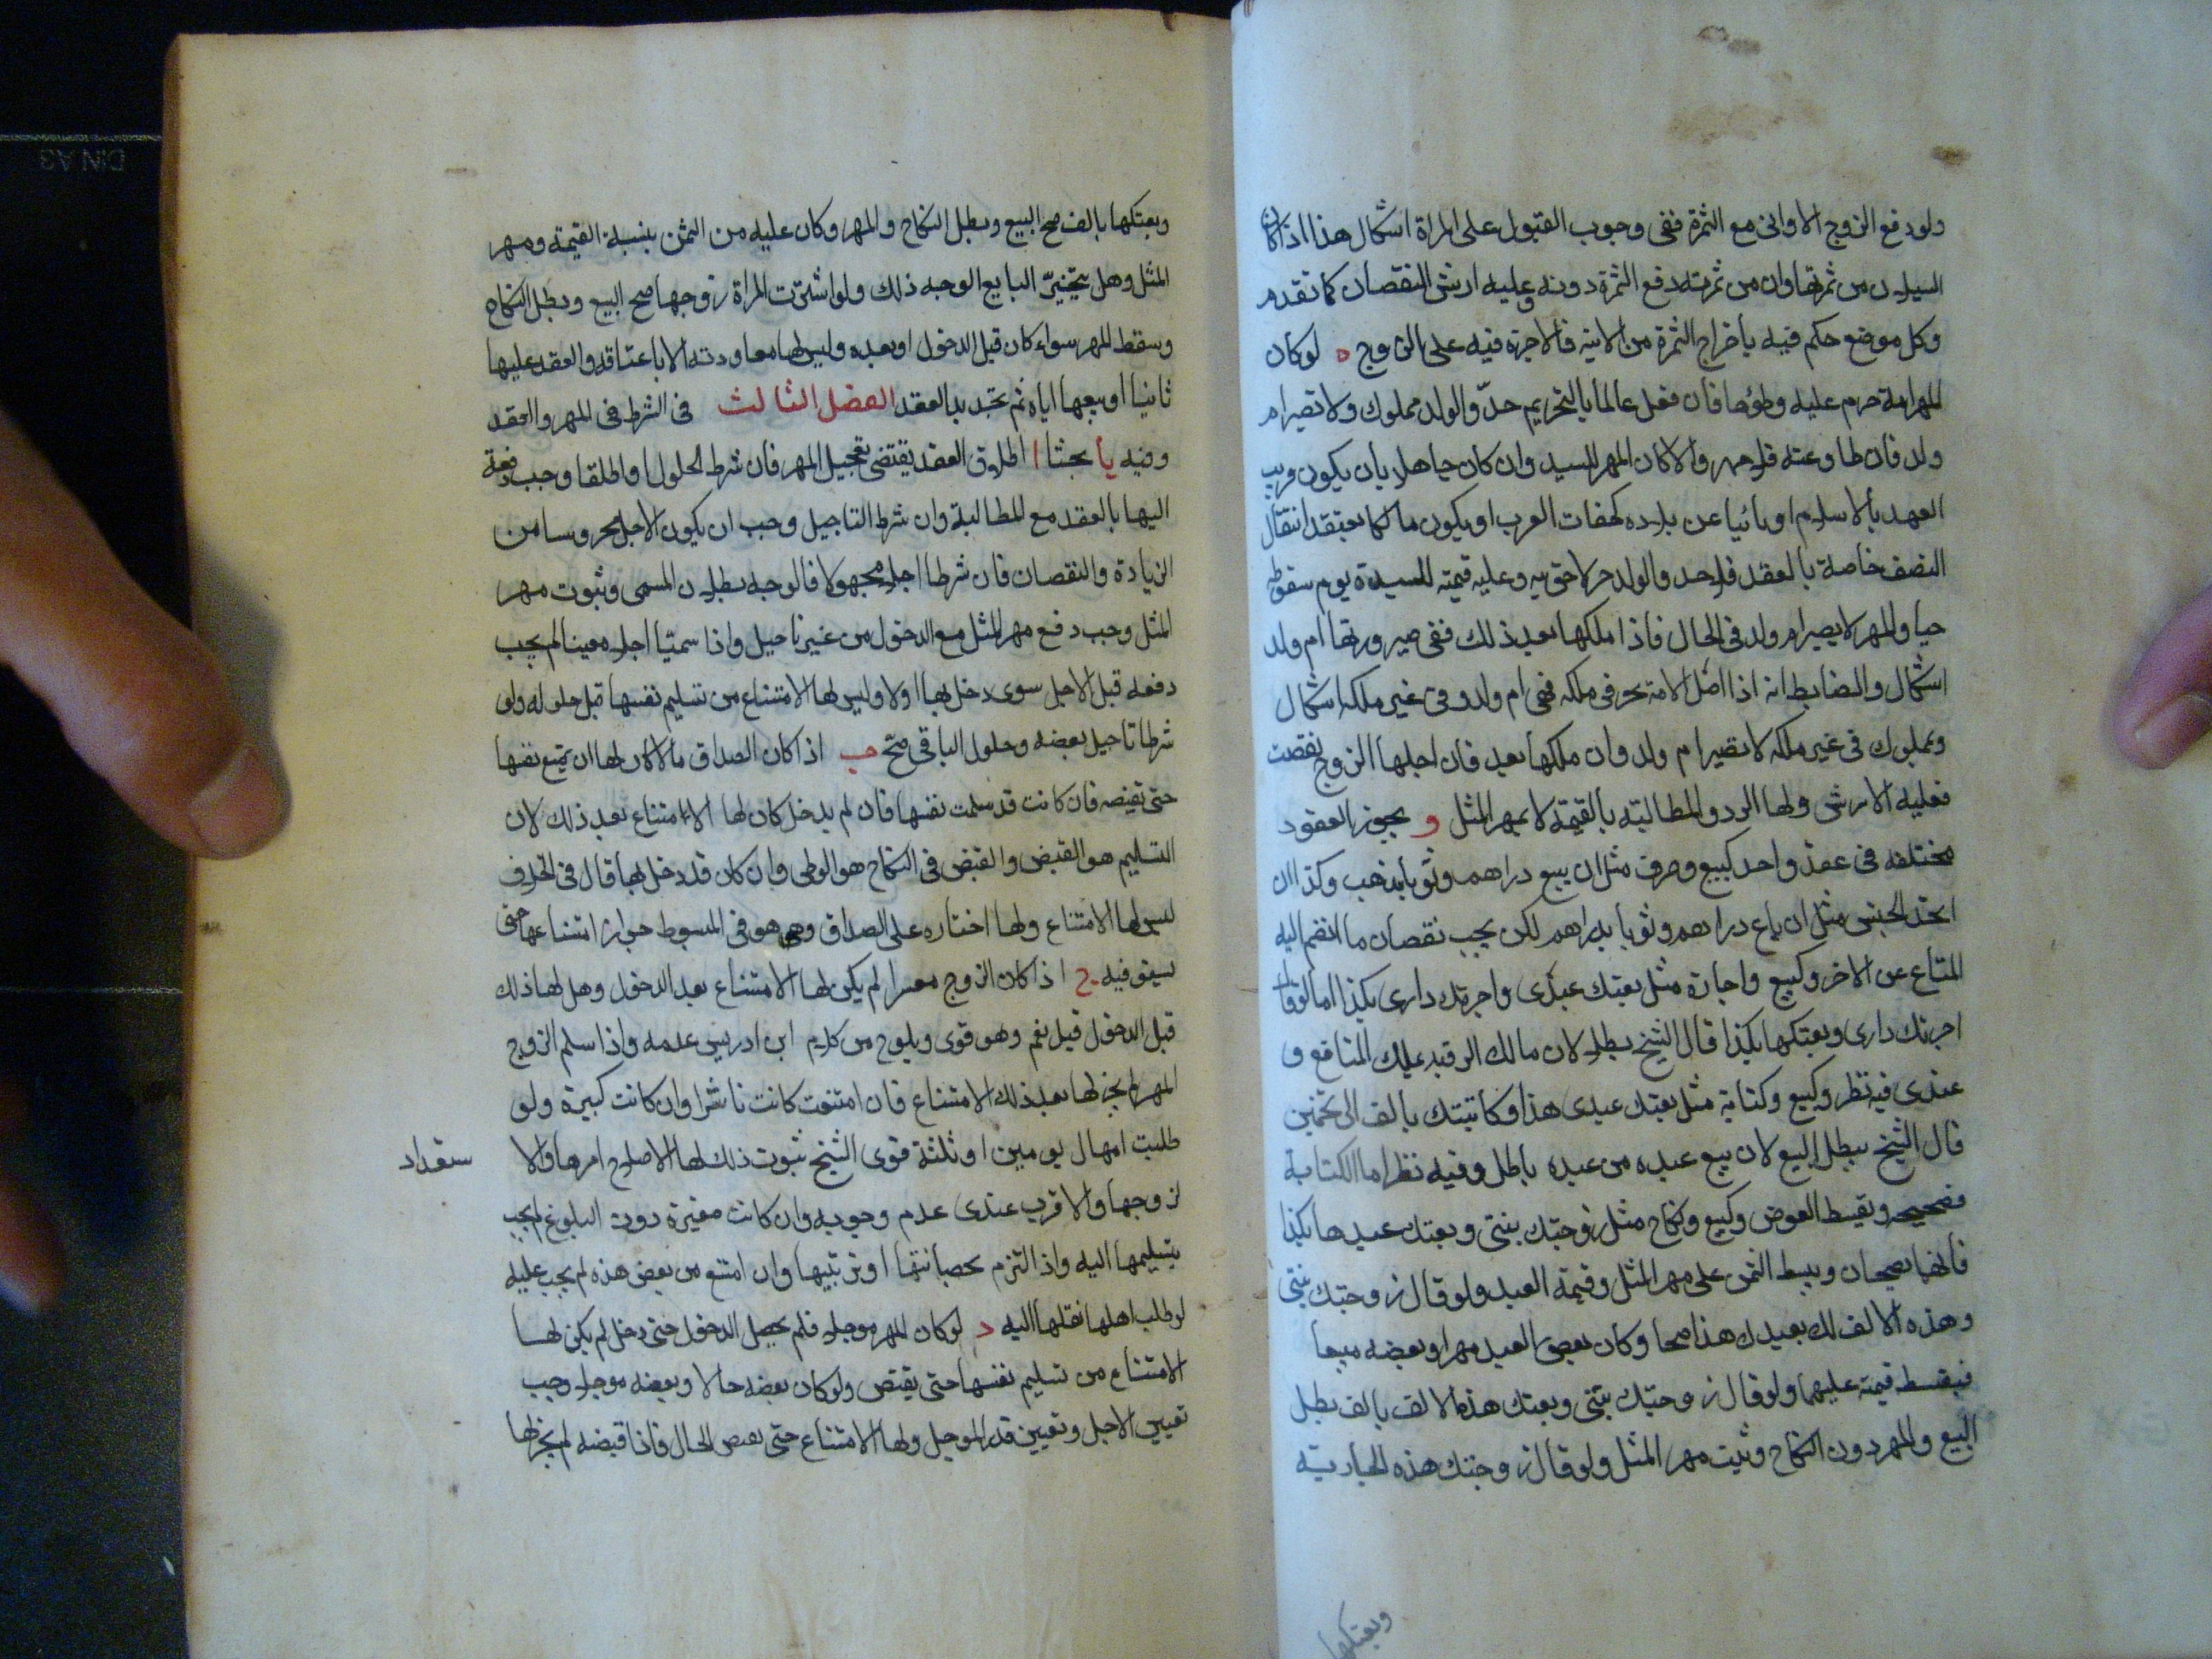 ولو دفع الزوج الاوانى مع الثمرة ففى وجوب القبول على المراة اشكال هذا اذا كان
السيلان من ثمرتها وان من ثمرته دفع الثمرة دونه وعليه ارش النقصان كما تقدم
وكل موضع حكم فيه باخراج الثمرة من الانية فالاجرة فيه على الزوج ه لو كان
المهر امة حرم عليه وطؤها فان فعل عالما بالتحريم حدّ والولد مملوك ولا تصير ام
ولد فان طاوعته فلا مهر والا كان المهر للسيد وان كان جاهلا بان يكون قريب
العهد بالاسلام او نائيا عن بلده كحفات العرب او يكون مالكيا يعتقد انتقال
النصف خاصة بالعقد فلا حد والولد حر لاحق به وعليه قيمته للسيدة يوم سقوطه
حيا والمهر لا يصير ام ولد فى الحال فاذا ملكها بعد ذلك ففى صيرورتها ام ولد
اشكال والضابط انه اذا احبل الامة بحر فى ملكه فهى ام ولد وفى غير ملكه اشكال
وبمملوك فى غير ملكه لا تصير ام ولد وان ملكها بعد فان احبلها الزوج نقصت
فعليه الارش ولها الرد والمطالبة بالقيمة لا بمهر المثل و يجوز العقود
مختلفه فى عقد واحد كبيع وصرف مثل ان يبيع دراهم وثوبا بذهب وكذا ان
اتحد الجنس مثل ان باع دراهم وثوبا بدراهم لكن يجب نقصان ما انضم اليه
المتاع عن الاخر وكبيع واجارة مثل بعتك عبدى واجرتك دارى بكذا اما لو قال
اجرتك دارى وبعتكها بكذا قال الشيخ بطلا لان مالك الرقبه يملك المنافع و
عندى فيه نظر وكبيع وكتابة مثل بعتك عبدى هذا وكاتبتك بالف الى نجمين
قال الشيخ يبطل البيع لان بيع عبده من عبده باطل وفيه نظر اما الكتابة
فصحيحه ويقسط العوض وكبيع ونكاح مثل زوجتك بنتى وبعتك عبدها بكذا
فانهما يصحان ويبسط الثمن على مهر المثل وقيمة العبد ولو قال زوجتك بنتى
وهذه الالف لك بعبدك هذا صحا وكان بعض العبد مهرا وبعضه مبيعا
فيقسط قيمته عليهما ولو قال زوجتك بنتى وبعتك هذه الالف بالف بطل
البيع والمهر دون النكاح وثبت مهر المثل ولو قال زوجتك هذه الجارية
وبعتكها
وبعتكها بالف صح البيع وبطل النكاح والمهر وكان عليه من الثمن بنسبة القيمة ومهر
المثل وهل يتخيّر البايع الوجه ذلك ولو اشترت المراة زوجها صح البيع وبطل النكاح
وسقط المهر سواء كان قبل الدخول او بعده وليس لها معاودته الا باعتاقه والعقد عليها
ثانيا او بيعها اياه ثم تجديد العقد الفصل الثالث فى الشرط فى المهر والعقد
وفيه يا بحثا ا اطلاق العقد يقتضى تعجيل المهر فان شرط الحلول او اطلقا وجب دفعه
اليها بالعقد مع المطالبة وان شرط التاجيل وجب ان يكون الاجل محروسا من
الزيادة والنقصان فان شرطا اجلا مجهولا فالوجه بطلان المسمى وثبوت مهر
المثل وجب دفع مهر المثل مع الدخول من غير تاجيل واذا سميا اجلا معينا لم يجب
دفعه قبل الاجل سوى دخل بها اولا وليس لها الامتناع من تسليم نفسها قبل حلوله ولو
شرطا تاجيل بعضه وحلول الباقى صحّ ب اذا كان الصداق مالا كان لها ان تمنع نفسها
حتى تقبضه فان كانت قد سلمت نفسها فان لم يدخل كان لها الامتناع بعد ذلك لان
التسليم هو القبض والقبض فى النكاح هو الوطى وان كان قد دخل بها قال فى الخلاف
ليس لها الامتناع ولها اختاره على الصداق وهو فى المبسوط جواز امتناعها حتى
يستوفيه ج اذا كان الزوج معسرا لم يكن لها الامتناع بعد الدخول وهل لها ذلك
قبل الدخول قيل نعم وهو قوى ويلوح من كلام ابن ادريس عدمه واذا سلم الزوج
المهر لم يجز لها بعد ذلك الامتناع فان امتنعت كانت ناشزا وان كانت كبيرة ولو
طلبت امهال يومين او ثلثة قوى الشيخ ثبوت ذلك لها لاصلاح امرها والا
لزوجها والاقرب عندى عدم وجوبه وان كانت صغيرة دون البلوغ لم يجب
تسليمها اليه واذا التزم بحضانتها او تربيتها وان امتنع من بعض هذه لم يجب عليه
لو طلب اهلها نقلها اليه د لو كان المهر موجلا فلم يحصل الدخول حتى دخل لم يكن لها
الامتناع من تسليم نفسها حتى يقبض ولو كان بعضه حالا وبعضه موجلا وجب
تعيين الاجل وتعيين قدر الموجل ولها الامتناع حتى يقبض الحال فاذا قبضه لم يجز لها